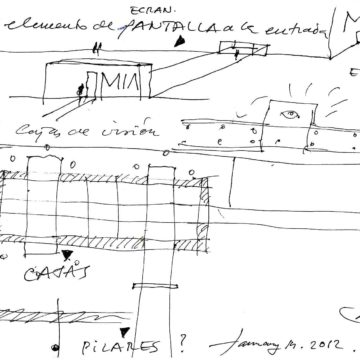 ECRAN.
elemento de PANTALLA a la entrada
MIA
cajas de visión
CAJAS
PILARES ?
January 14. 2012.